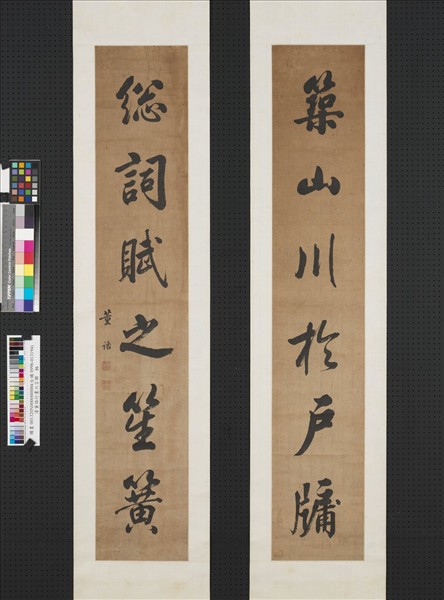 築山川於戶牖
総詞賦之笙簧
董誥